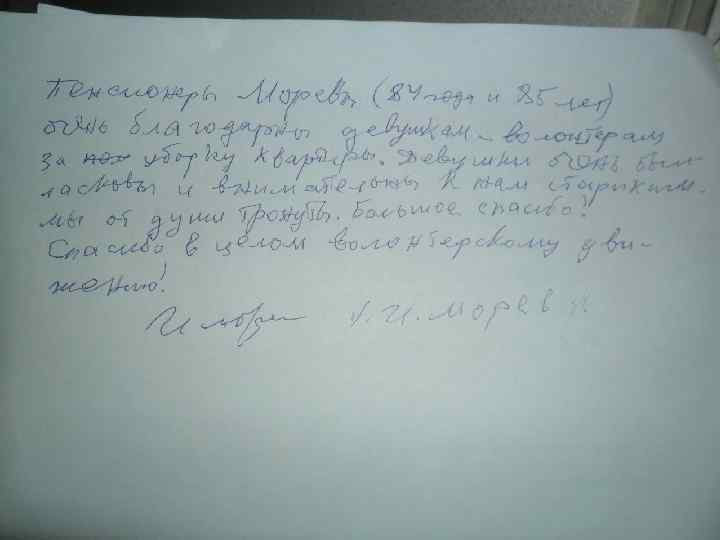 Пенсионеры Моревы (84 года и 85 лет)
очень благодарны девушкам-волонтерам
за уборку квартиры. Девушки очень были
ласковы и внимательны к нам старикам.
мы от души тронуты. Большое спасибо!
Спасибо в целом волонтерскому дви-
жению!
И. Моревы